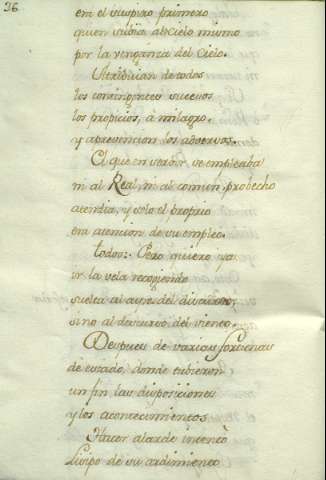 36
era el suspiro primero
quien subia al Cielo mismo
por la venganza del Cielo.
Atribuian de todos
los contingentes sucesos
los propicios, a milagro,
y aprevencion los adversos.
El que en servir se empleaba
ni al Real, ni al comun probecho
atendia, y solo el proprio
era atencion de su empleo.
todos: Pero quiero ya
ir la vela recogiendo
suelta al ayre del
sino al descurso del viento.
Despues de varias fortunas
de estado, donde tubieron
un fin las disposiciones
y los acontecimientos
Hacer alarde intentò
de su ardimiento